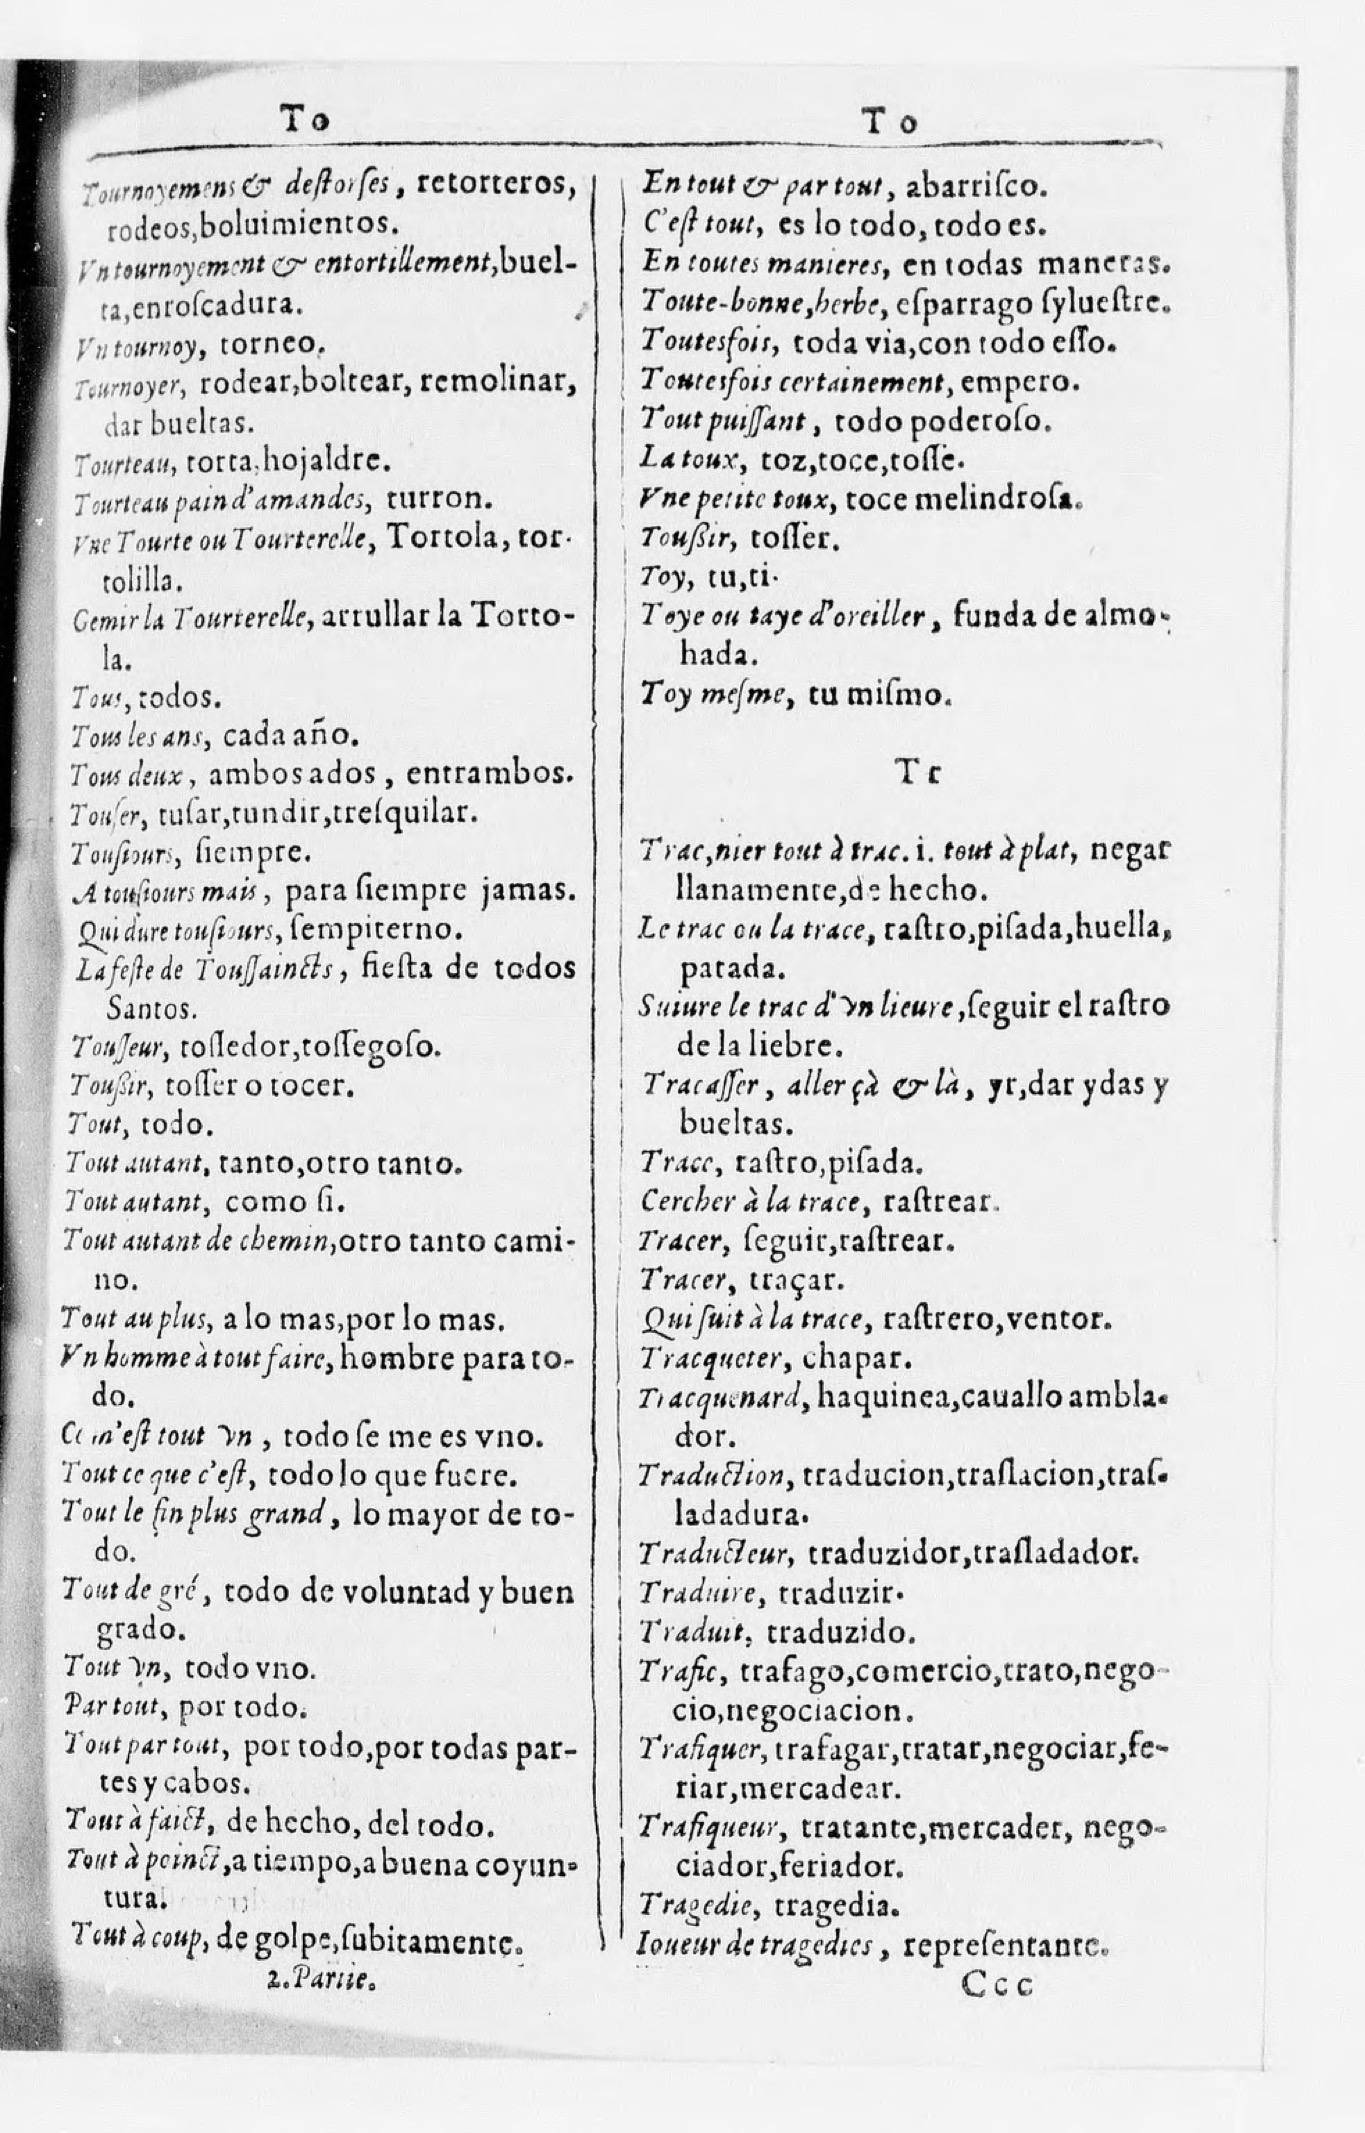 To
Tournoyemens & deſtorſes, retorteros,
rodeos,boluimientos.
Vn tournoyement & entortillement,buel-
ta,enroſcadura.
Vn tournoy, torneo.
Tournoyer, rodear,boltear, remolinar,
dar bueltas.
Tourteau, torta,hojaldre.
Tourteau pain d'amandes, turron.
Vne Tourte ou Tourterelle, Tortola, tor-
tolilla.
Gemir la Tourterelle, arrullar la Torto-
la.
Tous, todos.
Tous les ans, cada año.
Tous deux, ambos ados, entrambos.
Touſer, tuſar,tundir,treſquilar.
Touſiours, ſiempre.
A touſiours mais, para ſiempre jamas.
Qui dure touſiours, ſempiterno.
La feſte de Touſſaincts, fieſta de todos
Santos.
Touſſeur, toſſedor,toſſegoſo.
Touſsir, toſſer o tocer.
Tout, todo.
Tout autant, tanto,otro tanto.
Tout autant, como ſi.
Tout autant de chemin,otro tanto cami-
no.
Tout au plus, a lo mas,por lo mas.
Vn homme à tout faire, hombre para to-
do.
Ce m'eſt tout vn, todo ſe me es vno.
Tout ce que c'eſt, todo lo que fuere.
Tout le fin plus grand, lo mayor de to-
do.
Tout de gré, todo de voluntad y buen
grado.
Tout vn, todo vno.
Par tout, por todo.
Tout par tout, por todo,por todas par-
tes y cabos.
Tout à faict, de hecho, del todo.
Tout à poinct,a tiempo,a buena coyun-
tura.
Tout à coup, de golpe,ſubitamente.
2.Partie.
To
En tout & par tout, abarriſco.
C'eſt tout, es lo todo, todo es.
En toutes manieres, en todas maneras.
Toute-bonne,herbe, eſparrago ſylueſtre.
Toutesfois, toda via,con todo eſſo.
Toutesfois certainement, empero.
Tout puiſſant, todo poderoſo.
La toux, toz,toce,toſſe.
Vne petite toux, toce melindroſa.
Touſsir, toſſer.
Toy, tu,ti.
Toye ou taye d'oreiller, funda de almo-
hada.
Toy meſme, tu miſmo.
Tr
Trac,nier tout à trac. i. tout à plat, negar
llanamente,de hecho.
Le trac ou la trace, raſtro,piſada,huella,
patada.
Suiure le trac d'vn lieure,ſeguir el raſtro
de la liebre.
Tracaſſer, aller çà & là, yr,dar ydas y
bueltas.
Trace, raſtro,piſada.
Cercher à la trace, raſtrear.
Tracer, ſeguir,raſtrear.
Tracer, traçar.
Qui ſuit à la trace, raſtrero,ventor.
Tracqueter, chapar.
Tracquenard, haquinea,cauallo ambla-
dor.
Traduction, traducion,traſlacion,traſ-
ladadura.
Traducteur, traduzidor,traſladador.
Traduire, traduzir.
Traduit, traduzido.
Trafic, trafago,comercio,trato,nego-
cio,negociacion.
Trafiquer, trafagar,tratar,negociar,fe-
riar,mercadear.
Trafiqueur, tratante,mercader, nego-
ciador,feriador.
Tragedie, tragedia.
Ioueur de tragedies, repreſentante.
Ccc